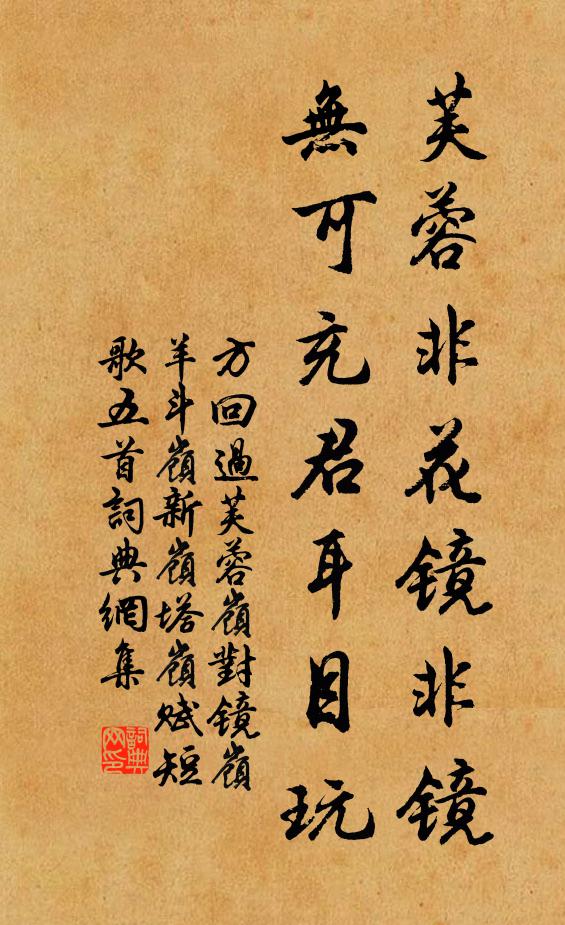 芙蓉非花镜非镜
無可充君耳目玩
方回過芙蓉嶺對镜嶺
羊斗嶺新嶺塔嶺赋短
歌五首詞典網集
詞典
网印